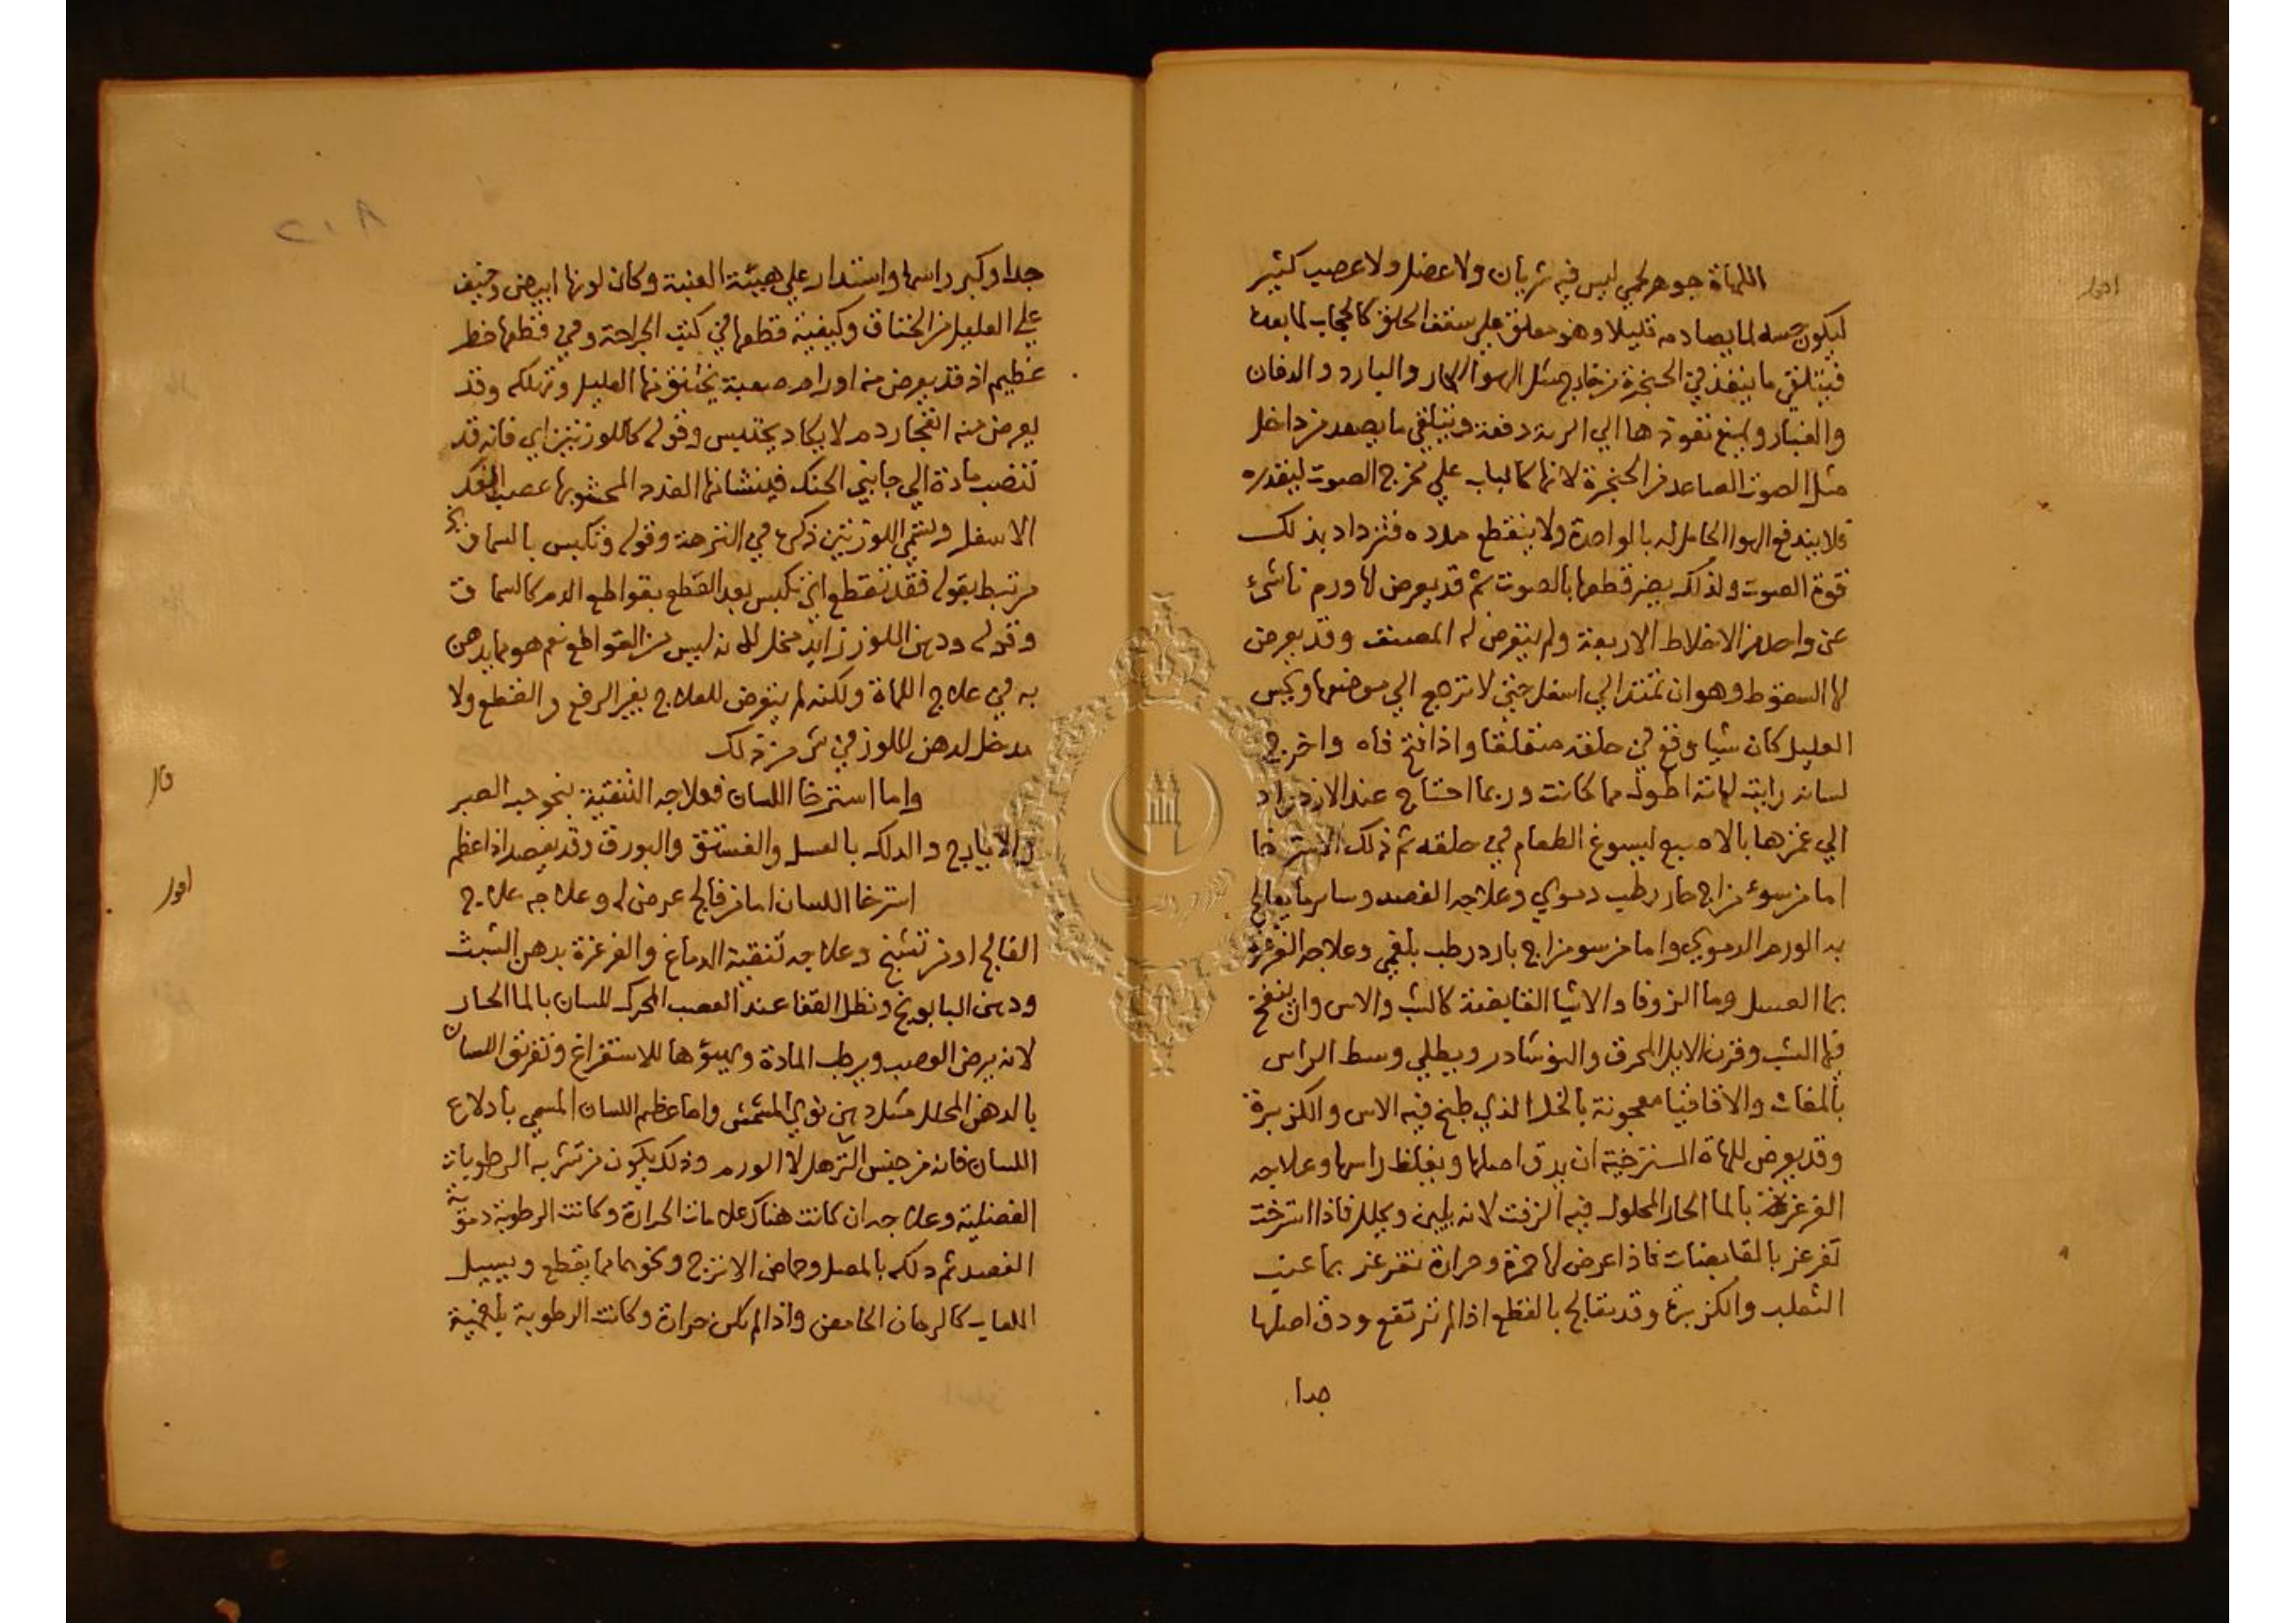 اقول
اللهاة جوهر لحمي ليس فيه شريان ولا عضل ولا عصب كثير
ليكون حسه لما يصادمه قليلا وهو معلق على سقف الحلق كالحجاب لما بعدها
فيتلقى ما ينفذ في الحنجرة من خارج مثل الهوا الحار والبارد والدخان
والغبار ويمنع نفوذها الي الرية دفعة ويتلقي ما يصعد من داخل
مثل الصوت الصاعد من الحنجرة لانها كالباب علي مخرج الصوت ليقدره
فلا يندفع الهوا الحامل له بالواحدة ولا ينقطع مدده فتزداد بذلك
قوة الصوت ولذلك يضر قطعها بالصوت ثم قد يعرض لها ورم ناشئ
عن واحد من الاخلاط الاربعة ولم يتعرض له المصنف وقد يعرض
لها السقوط وهو ان تمتد الي اسفل حتي لا ترجع الي موضعها ويحس
العليل كان شيا وقع في حلقه متعلقا واذا فتح فاه واخرج
لسانه رايت لهاته اطول مما كانت وربما احتاج عند الازدراد
الي غمزها بالاصبع ليسوغ الطعام في حلقه ثم ذلك الاسترخا
اما من سوء مزاج حار رطب دموي وعلاجه الفصد وساير ما يعالج
به الورم الدموي واما من سو مزاج بارد رطب بلغمي وعلاجه التغرغر
بما العسل وما الزوفا والاشيا القابضة كالشب والاس وان ينفخ
فيها الشب وقرن الايل المحرق والنوشادر ويطلي وسط الراس
بالمغاث والاقاقيا معجونة بالخل الذي طبخ فيه الاس والكزبرة
وقد يعرض للهاة المسترخية ان يدق اصلها ويغلظ راسها وعلاجه
الغرغرة بالما الحار المحلول فيه الزفت لانه يلين ويحلل فاذا استرخت
تغرغر بالقابضات فاذا عرض لها حمرة وحرارة تغرغر بما عنب
الثعلب والكزبرة وقد يعالج بالقطع اذا لم ترتفع ودق اصلها
جدا
٢١٨
جدا وكبر راسها واستدار علي هيئة العنبة وكان لونها ابيض وخيف
علي العليل من الخناق وكيفية قطعها في كتب الجراحة وفي قطعها خطر
عظيم اذ قد يعرض منه اورام صعبة يختنق منها العليل وتهلكه وقد
يعرض منه انفجار دم لا يكاد يحتبس وقوله كاللوزتين اي فانه قد
تنصب مادة الي جانبي الحنك فينشا منها الغدد المحشو بها عصب الفك
الاسفل ويسمي اللوزتين ذكره في النزهة وقوله وتكبس بالسماق
مرتبط بقوله فقد تقطع اي تكبس بعد القطع بقواطع الدم كالسماق
وقوله ودهن اللوز زايد مخل لانه ليس من القواطع نعم هو مما يدهن
به في علاج اللهاة ولكنه لم يتعرض للعلاج بغير الرفع والقطع ولا
مدخل لدهن اللوز في شي من ذلك
قال
واما استرخا اللسان فعلاجه التنقية بنحو حب الصبر
والايارج والدلك بالعسل والفستق والبورق وقد يفصد اذا عظم
اقول
استرخا اللسان اما من فالج عرض له وعلاجه علاج
الفالج او من تشنج وعلاجه تنقية الدماغ والغرغرة بدهن الشبث
ودهن البابونج ونطل القفا عند العصب المحرك للسان بالما الحار
لانه يرخي العصب ويرطب المادة ويهيؤها للاستفراغ وتعريق اللسان
بالدهن المحلل مثل دهن نوي المشمش واما عظم اللسان المسمي بادلاع
اللسان فانه من جنس الترهل لا الورم وذلك يكون من تشربه الرطوبات
الفضلية وعلاجه ان كانت هناك علامات الحرارة وكانت الرطوبة دموية
الفصد ثم دلكه بالمصل وحماض الاترج ونحوهما مما يقطع ويسيل
اللعاب كالرمان الحامض واذا لم تكن حرارة وكانت الرطوبة بلغمية